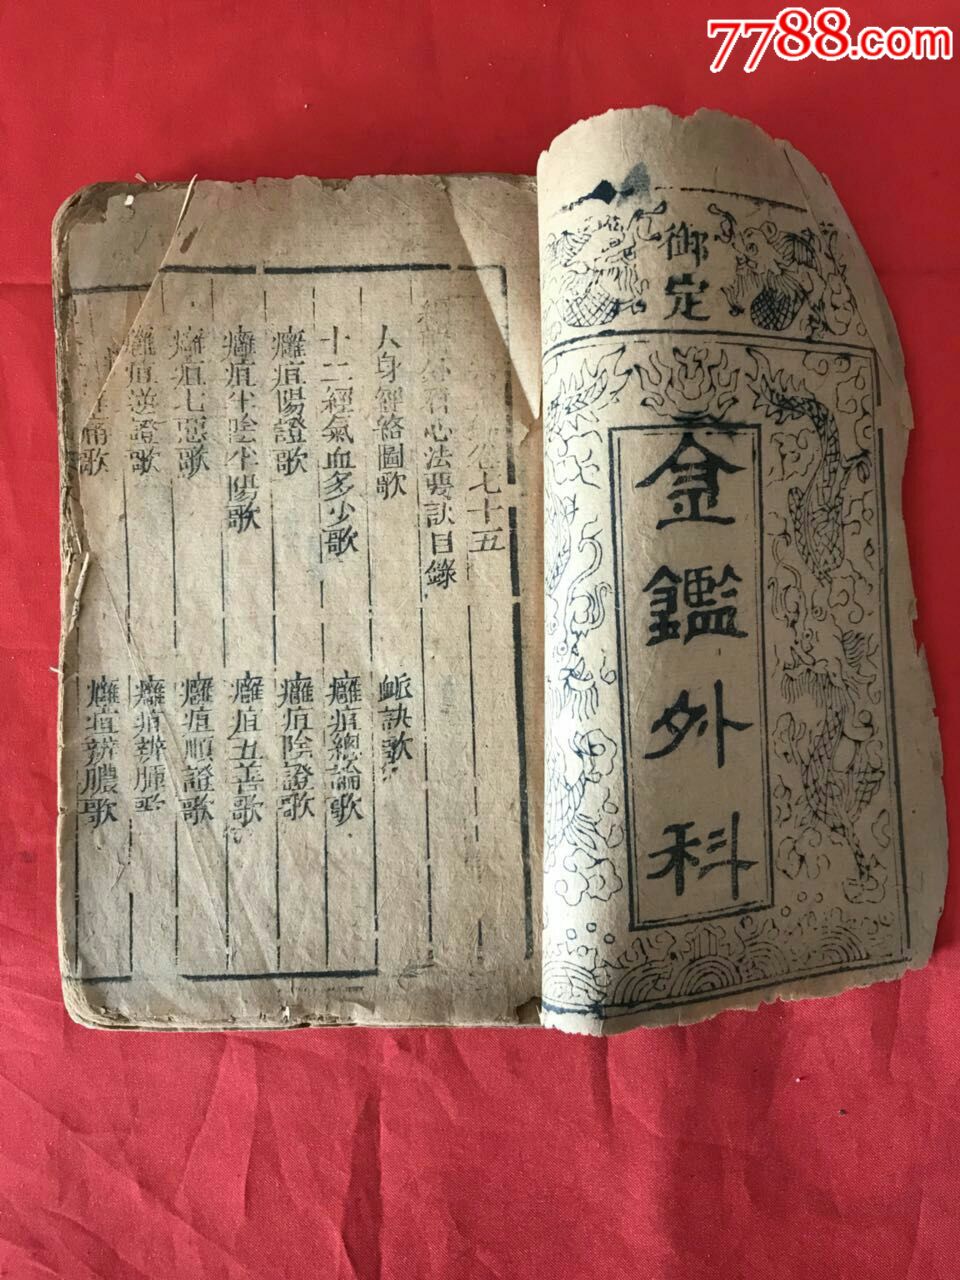 7788.com
御定
金鑑外科
卷七十五
心法要訣目錄
人身經絡圖歌
脈訣歌
十二經氣血多少歌
癰疽總論歌
癰疽陽證歌
癰疽陰證歌
癰疽半陰半陽歌
癰疽五善歌
癰疽七惡歌
癰疽順證歌
癰疽逆證歌
癰疽辨腫歌
痛歌
癰疽辨膿歌